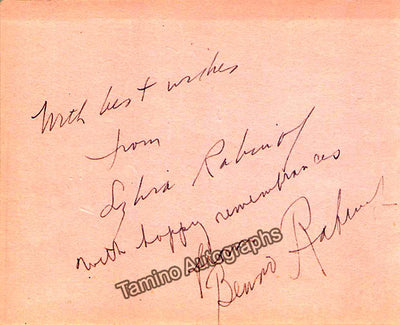 With best wishes
from
Sylvia Rabinof
with happy remembrances
Benno Rabinof
Tamino Autographs